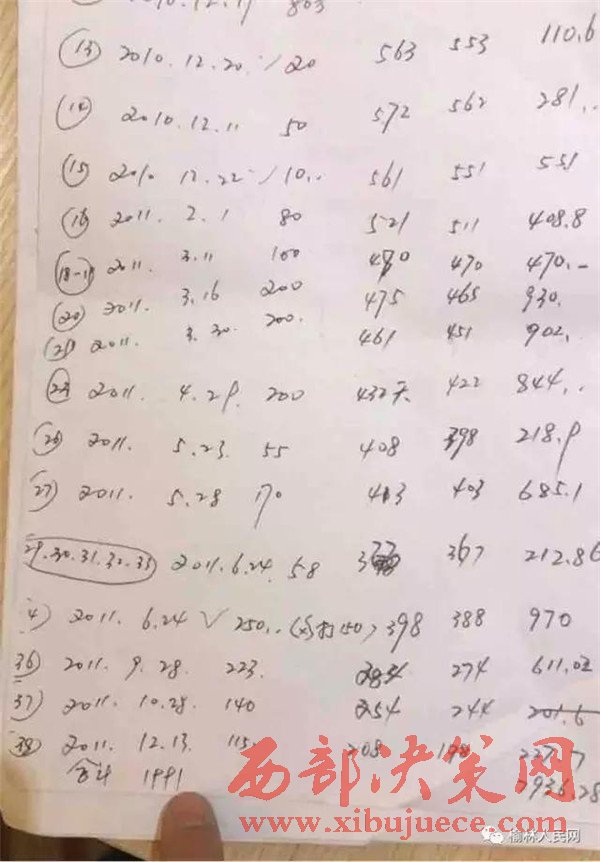 2010.12.17 803
(13) 2010.12.20. 20 563 553 110.6
(14) 2010.12.11 50 572 562 281..
(15) 2010 12.22 10.. 561 551 551
(16) 2011. 2.1 80 521 511 408.8
2011. 3.11 100 470 470.-
(20) 2011. 3.16 200 475 465 930.
2011. 3.30. 200. 461 451 902.
2011. 4.29. 200 432天 422 844..
2011. 5.23. 55 408 398 218.9
27) 2011. 5.28 170 413 403 685.1
29.30.31.32.33 2011.6.24. 58 377 367 212.86
4) 2011. 6.24 √ 250.. 398 388 970
36) 2011. 9.28. 223. 284 274 611.02
37) 2011. 10.28. 140 254 244
38) 2011. 12.13. 115. 208 198 227.7
合计 1991 7936.28
西部决策网
www.xibujuece.com
榆林人民网